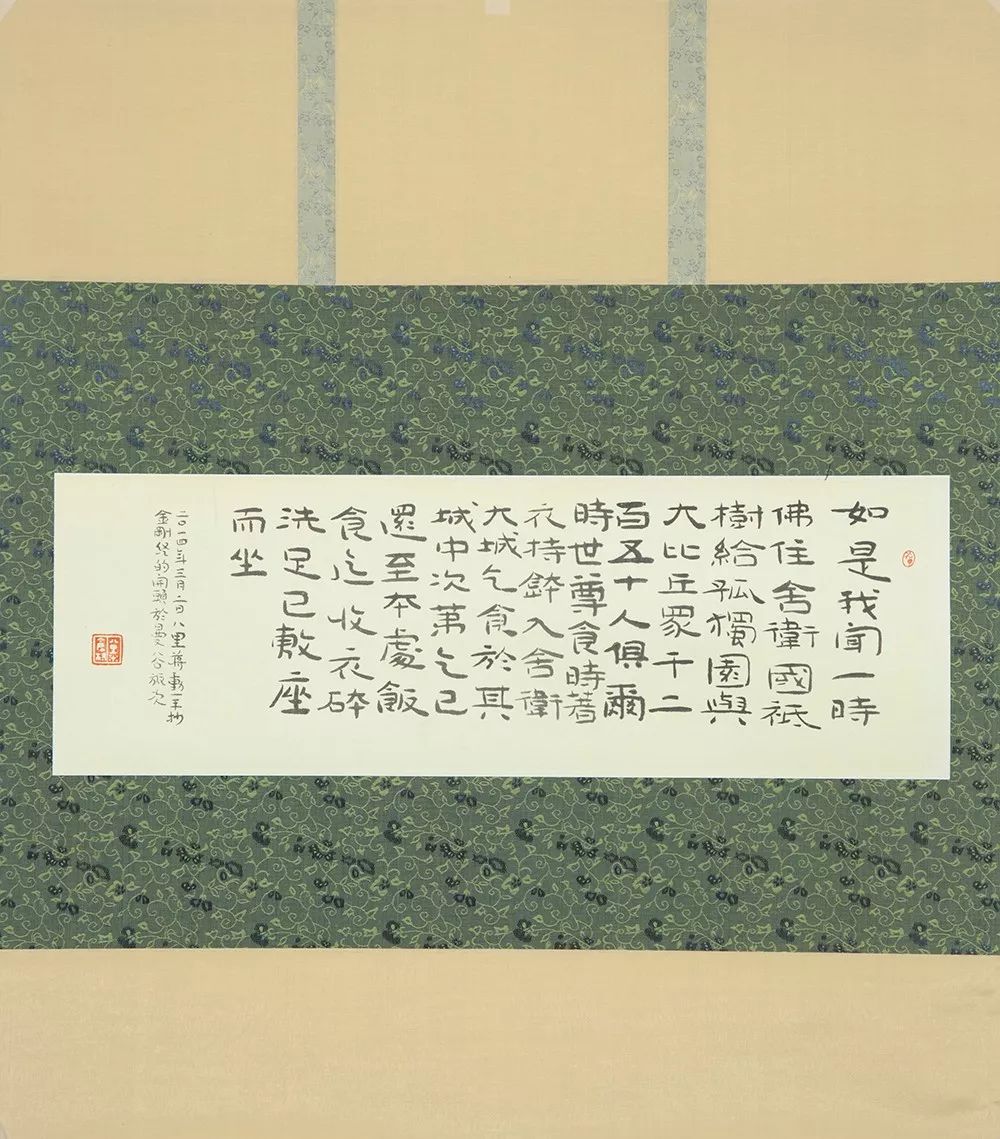 如是我聞一時
佛住舍衛國祇
樹給孤獨園與
大比丘眾千二
百五十人俱爾
時世尊食時著
衣持鉢入舍衛
大城乞食於其
城中次第乞已
還至本處飯
食迄收衣砵
洗足已敷座
而坐
二〇一四年三月二日八里蔣勳手抄
金剛經的開頭於曼谷旅次